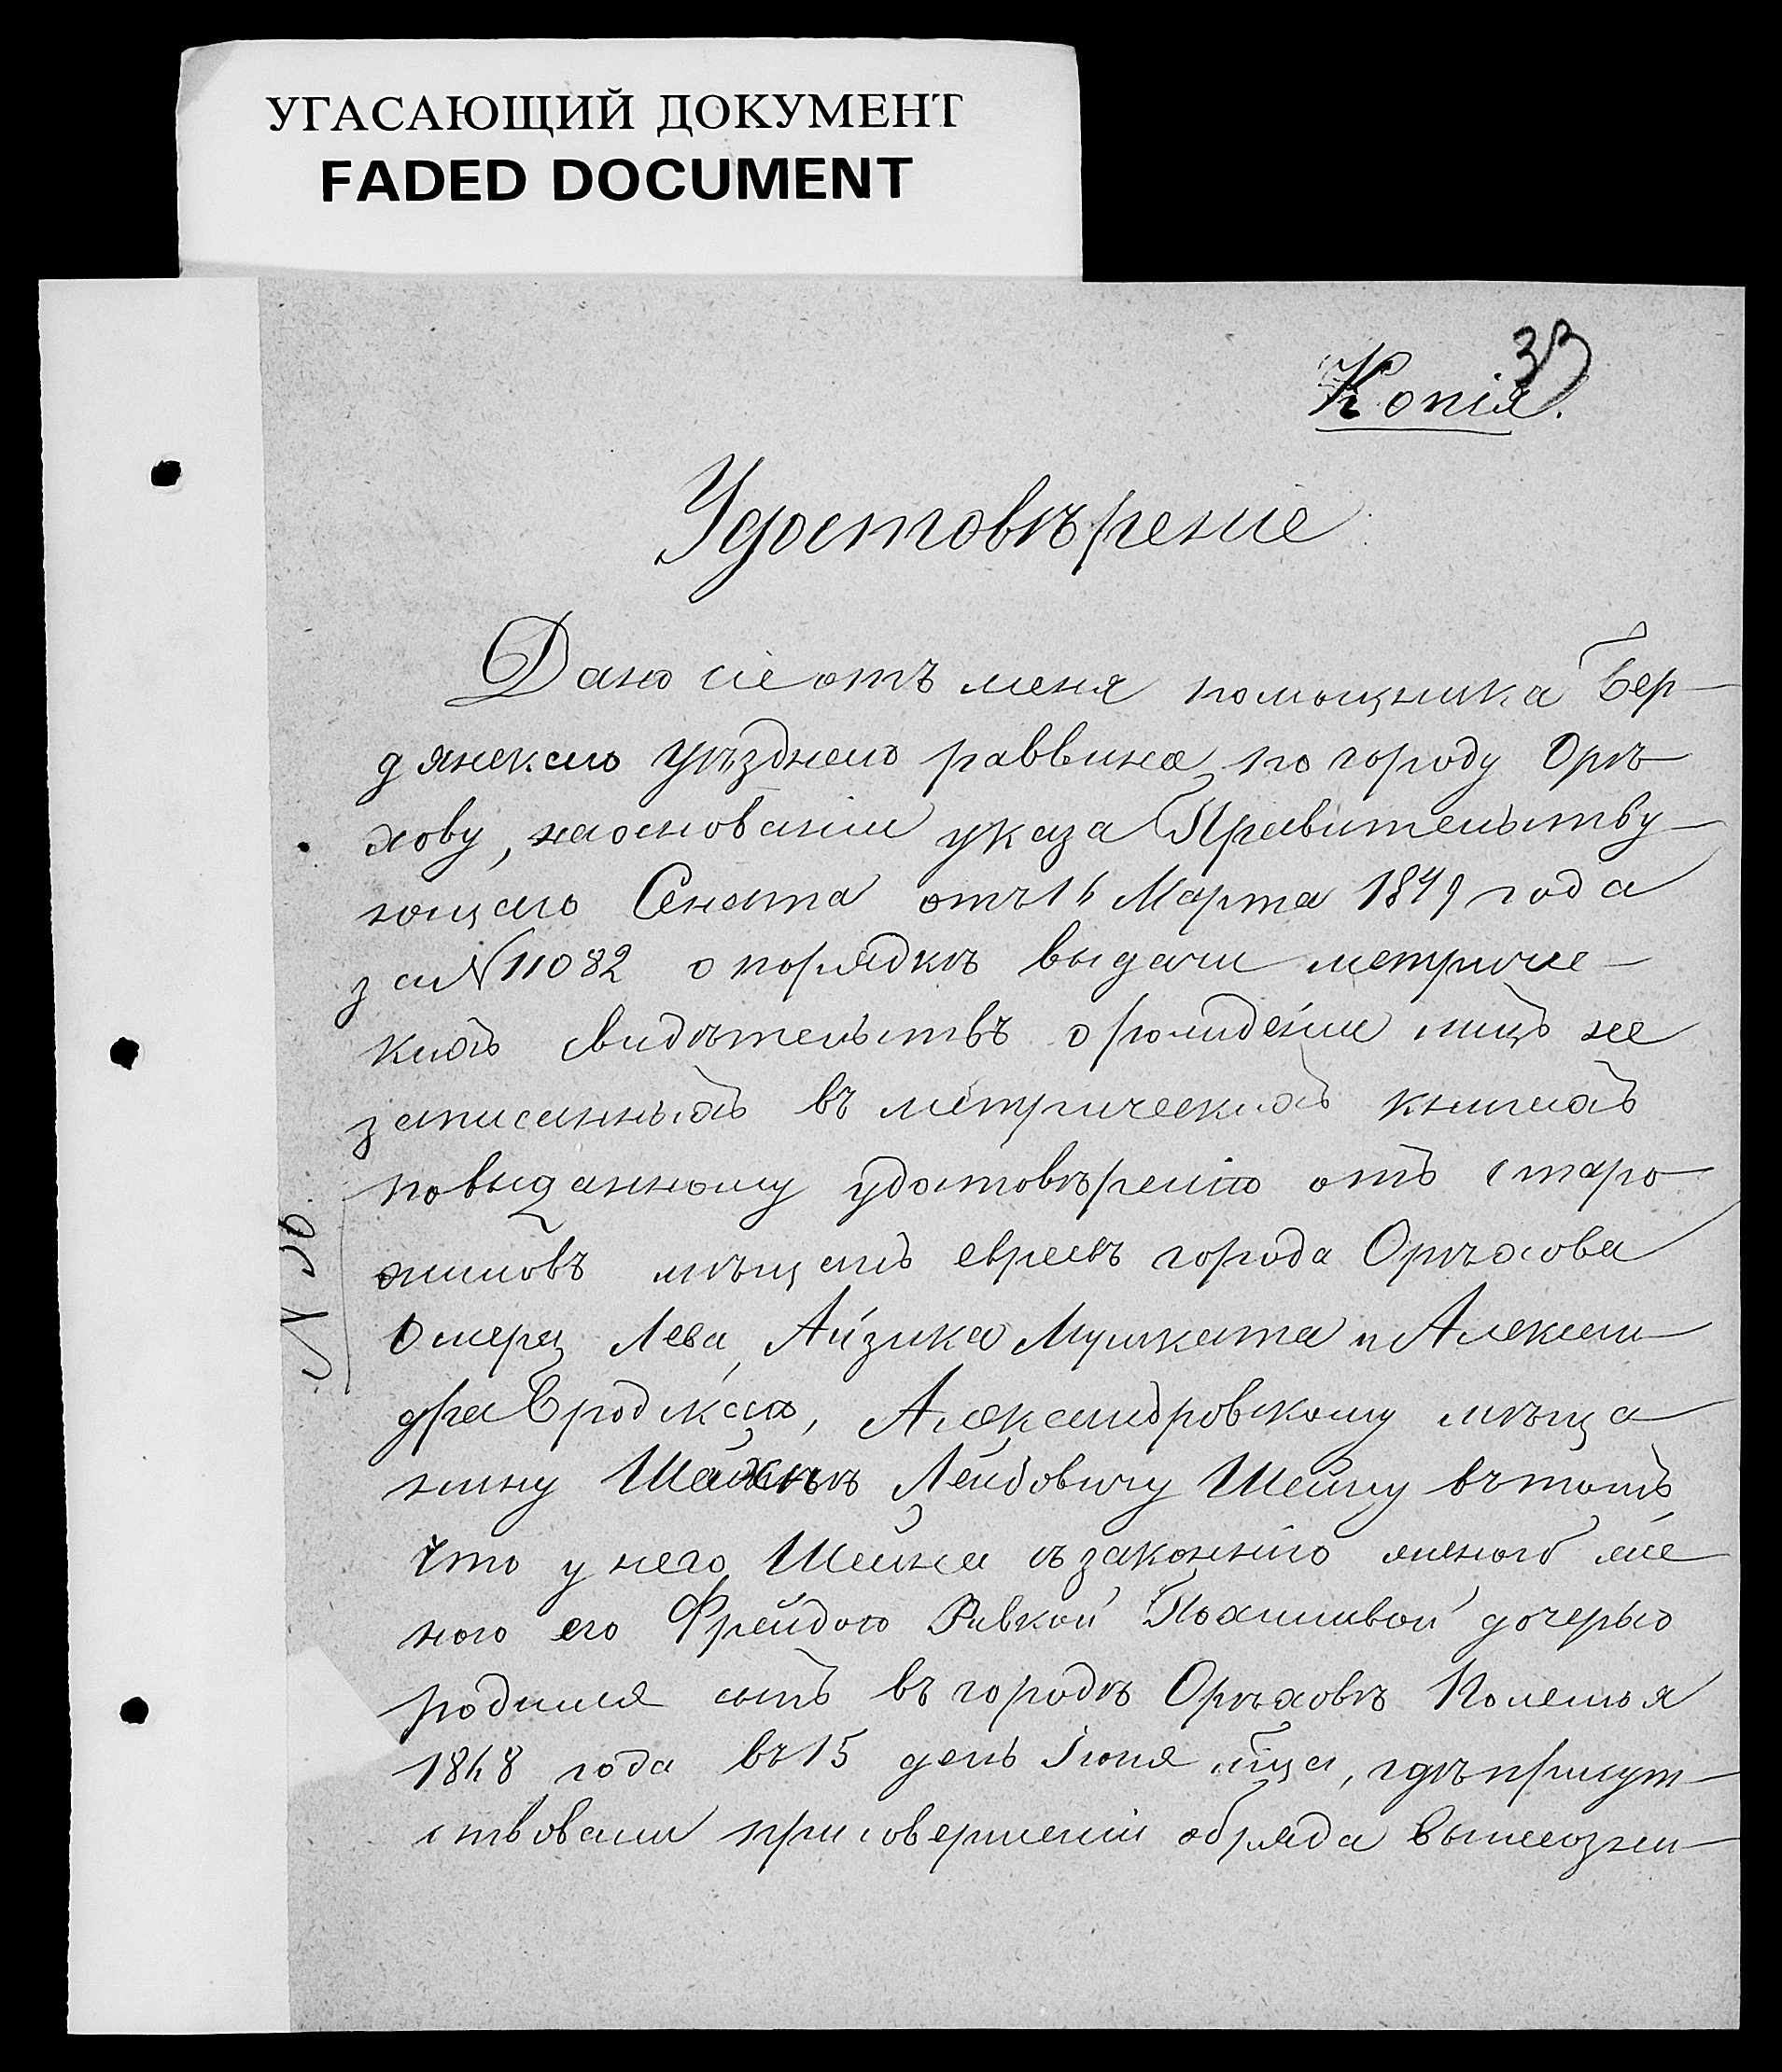 УГАСАЮЩИЙ ДОКУМЕНТ
FADED DOCUMENT
33
Копія.
Удостовѣреніе
Дано сіе отъ меня помощника Бер-
дянскаго Уѣзднаго раввина по городу Орѣ-
хову, на основаніи указа Правительству-
ющаго Сената отъ 16 Марта 1849 года
за № 11082 о порядкѣ выдачи метриче-
кихъ свидѣтельствъ о рожденіи лицъ не
записанныхъ въ метрическихъ книгахъ
по выданному удостовѣренію отъ старо
жиловъ мѣщанъ евреевъ города Орѣхова
Лева, Айзика Мушката и Алексан-
дра Бродскаго, Александровскому мѣща-
нину Лейбовичу Шейну въ томъ
что у него Шейна съ законною женою
ною его Фрейдою Ривкой дочерью
родился сынъ въ городѣ Орѣховѣ
1848 года въ 15 день Іюня мца, гдѣ присут-
ствовали при совершеніи обряда вышеозна-
N 36.